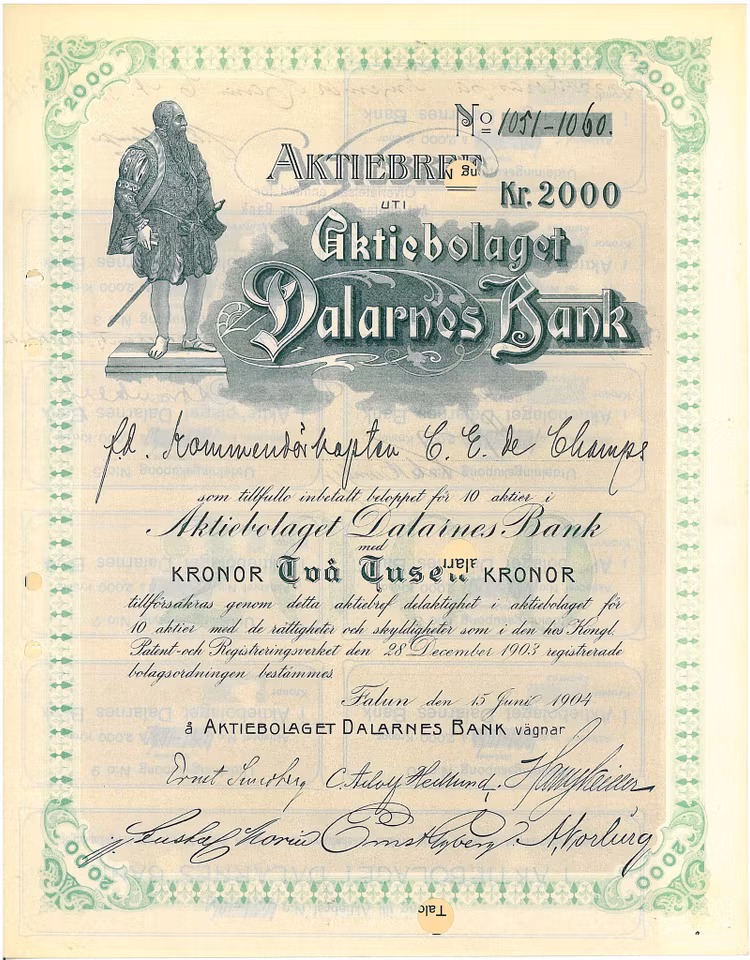 2000
2000
No 1051-1060.
AKTIEBREF
Kr. 2000
UTI
Aktiebolaget
Dalarnes Bank
fd. Kommendörkapten C. E. de Champs
som tillfullo inbetalt beloppet för 10 aktier i
Aktiebolaget Dalarnes Bank
med
KRONOR Två Tusen KRONOR
tillförsäkras genom detta aktiebref delaktighet i aktiebolaget för
10 aktier med de rättigheter och skyldigheter som i den hos Kongl.
Patent- och Registreringsverket den 28 December 1903 registrerade
bolagsordningen bestämmes.
Falun den 15 Juni 1904
å AKTIEBOLAGET DALARNES BANK vägnar
Ernst
C. Adolf Hedlund.
Gustaf
Ernst
A. Norburg
2000
2000